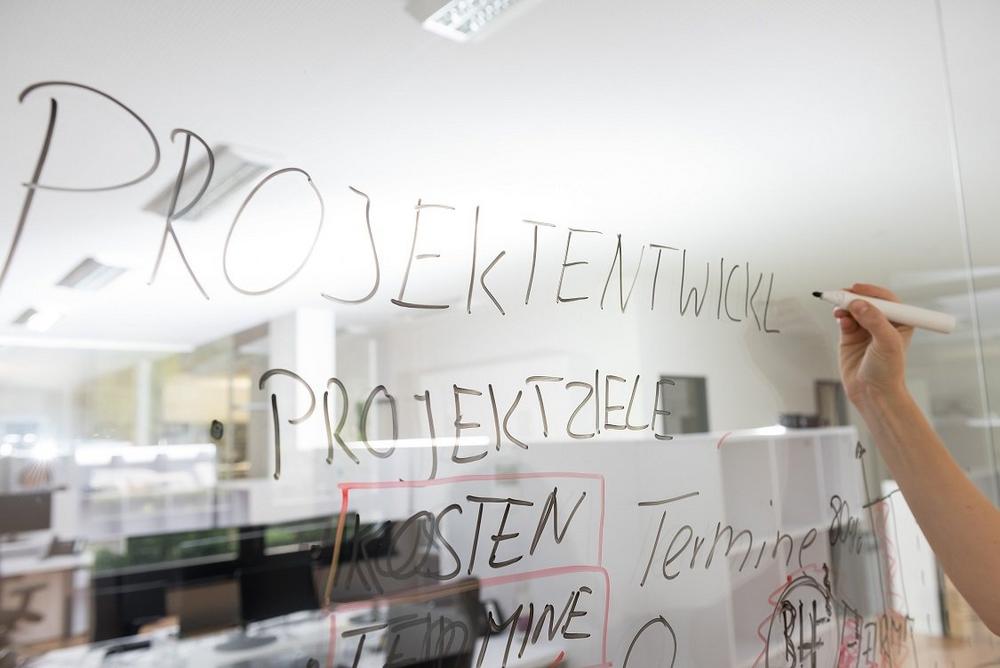 PROJEKTENTWICKL
• PROJEKTZIELE
KOSTEN Termine
TERMINE